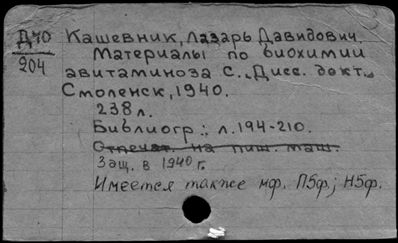 Д40
204
Кашевник, Лазарь Давидович.
Материалы по биохимии
авитаминоза С. Дисс. докт.
Смоленск, 1940.
238 л.
Библиогр.: л. 194-210.
Отпечат. на пиш. маш.
Защ. в 1940 г.
Имеется также мф. П5ф.; Н5ф.